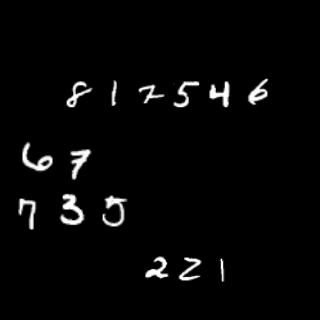 812546
67
735
221